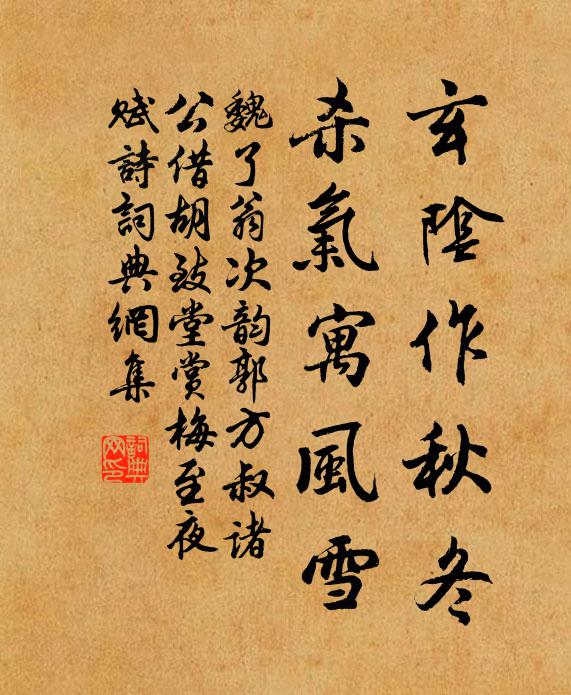 玄陰作秋冬
杀氣寓風雪
魏了翁次韵郭方叔諸
公借胡致堂赏梅至夜
赋詩詞典網集
詞典网印